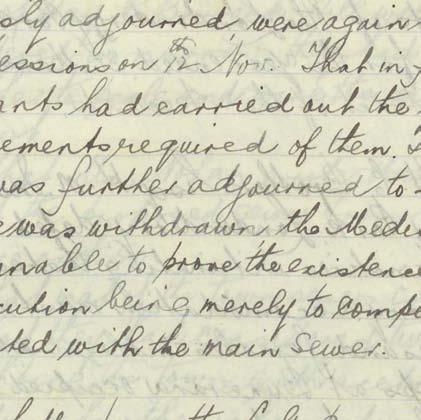 sly adjourned, were again
essions on 12th Nov. That in
ants had carried out the
ements required of them.
was further adjourned to
e was withdrawn, the Medi
unable to prove the existence
cution being merely to compe
ted with the main sewer.